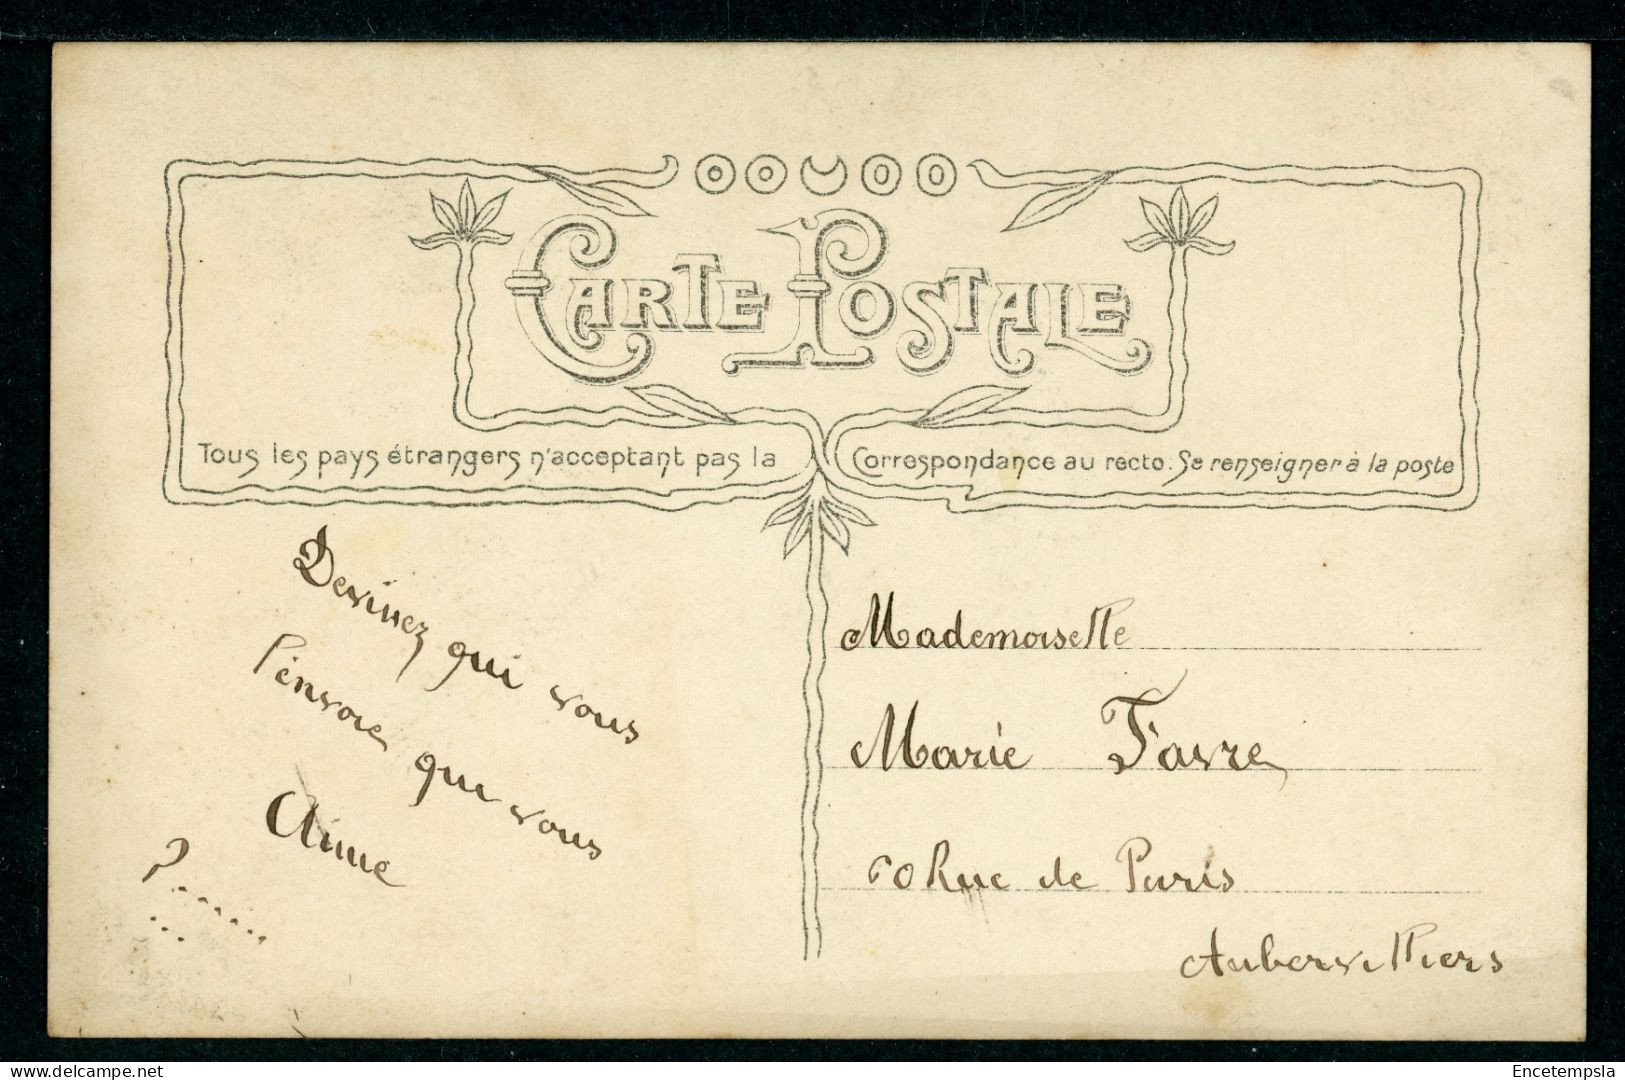 CARTE POSTALE
Tous les pays étrangers n'acceptant pas la Correspondance au recto. Se renseigner à la poste
Devinez qui vous
l'envoie que vous
Aime
?......
...
Mademoiselle
Marie Favre
60 Rue de Paris
Aubervilliers
delcampe.net
Encetempsla